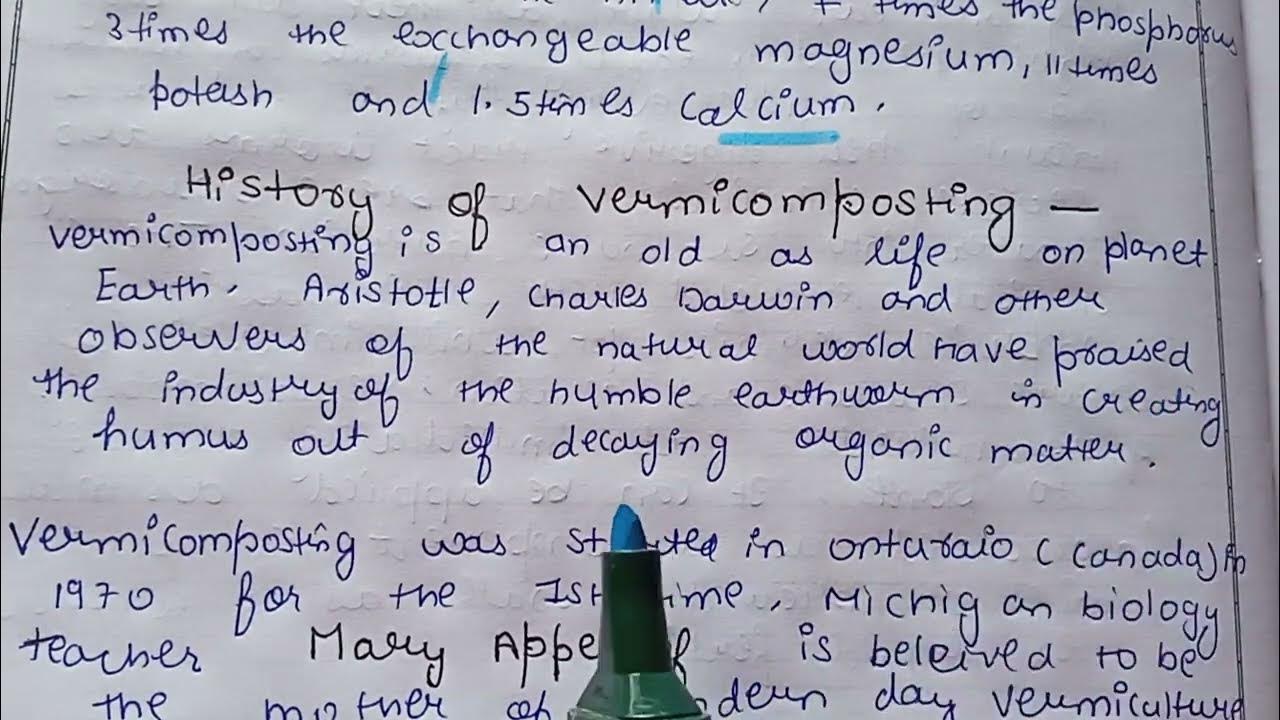 times the phosphorus
3 times the excchangeable magnesium, 11 times
potash and 1.5 times calcium.
History of vermicomposting —
vermicomposting is an old as life on planet
Earth. Aristotle, Charles Darwin and other
observers of the natural world have praised
the industry of the humble earthworm in creating
humus out of decaying organic matter.
Vermicomposting was started in onturaio (Canada) in
1970 for the Ist time. Michigan biology
teacher Mary Appe f is beleived to be
the mother of dern day vermiculture